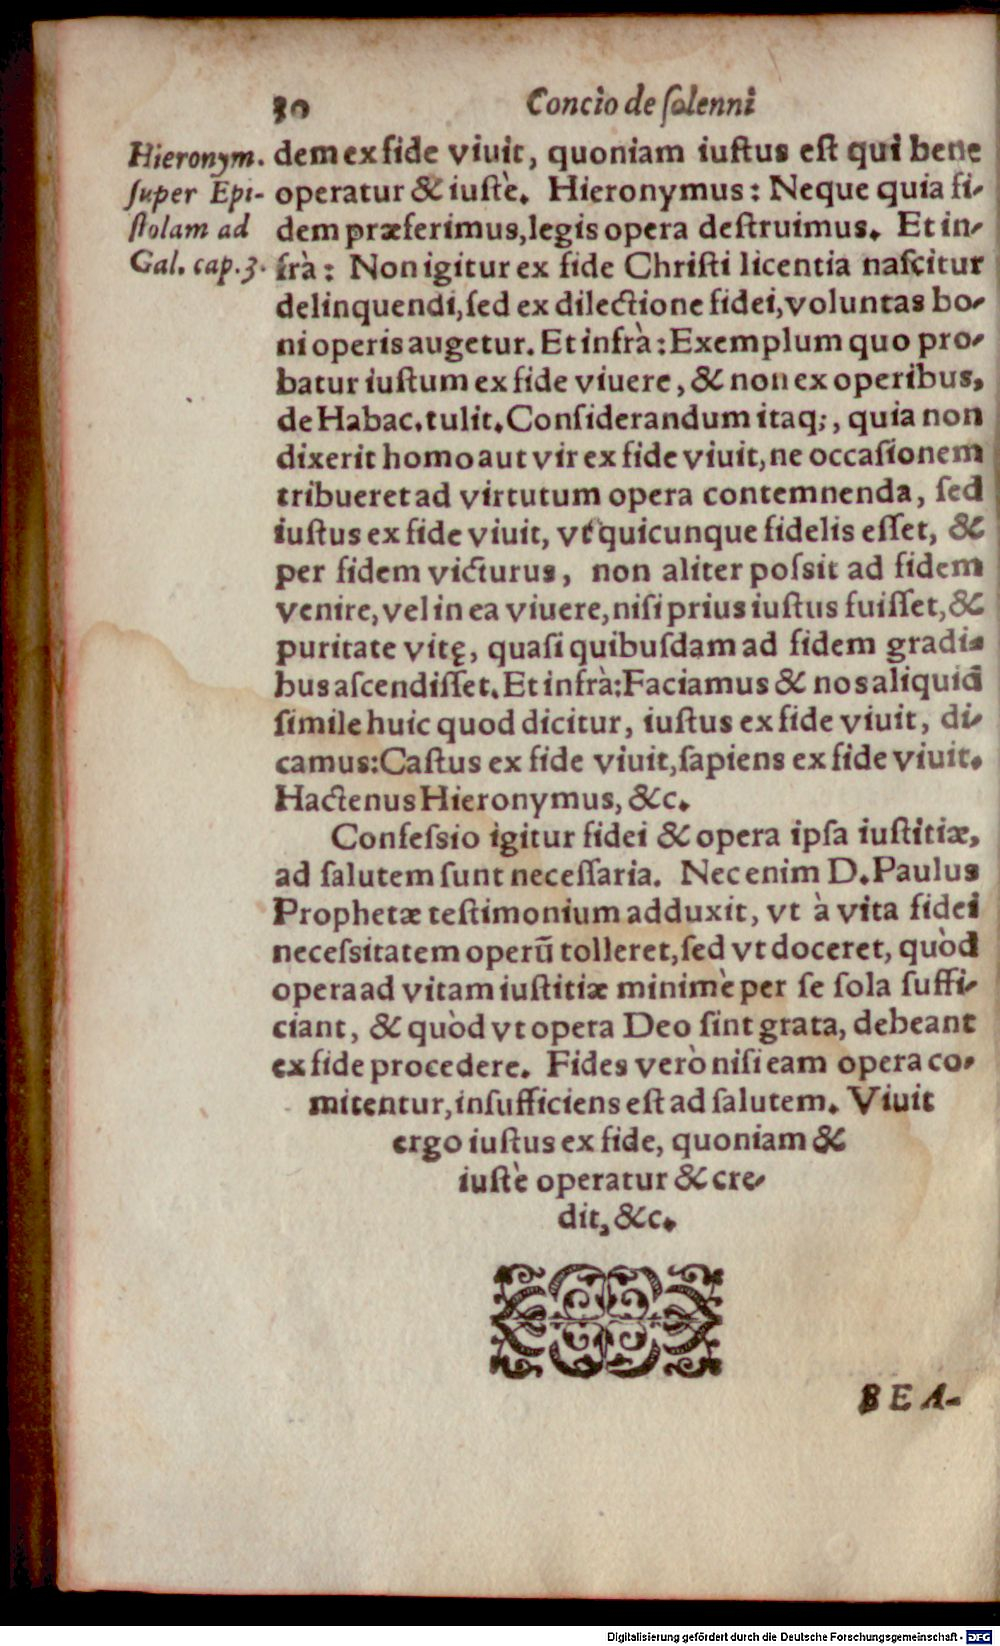 80 Concio de ſolenni
Hieronym.
ſuper Epi-
ſtolam ad
Gal. cap. 3.
dem ex fide viuit, quoniam iuſtus eſt qui bene
operatur & iuſtè. Hieronymus: Neque quia fi-
dem præferimus, legis opera deſtruimus. Et in-
frà: Non igitur ex fide Chriſti licentia naſcitur
delinquendi, ſed ex dilectione fidei, voluntas bo-
ni operis augetur. Et infrà: Exemplum quo pro-
batur iuſtum ex fide viuere, & non ex operibus,
de Habac. tulit. Conſiderandum itaq;, quia non
dixerit homo aut vir ex fide viuit, ne occaſionem
tribueret ad virtutum opera contemnenda, ſed
iuſtus ex fide viuit, vt quicunque fidelis eſſet, &
per fidem victurus, non aliter poſsit ad fidem
venire, vel in ea viuere, niſi prius iuſtus fuiſſet, &
puritate vitę, quaſi quibuſdam ad fidem gradi-
bus aſcendiſſet. Et infrà: Faciamus & nos aliquid
ſimile huic quod dicitur, iuſtus ex fide viuit, di-
camus: Caſtus ex fide viuit, ſapiens ex fide viuit.
Hactenus Hieronymus, &c.
Confeſsio igitur fidei & opera ipſa iuſtitiæ,
ad ſalutem ſunt neceſſaria. Nec enim D. Paulus
Prophetæ teſtimonium adduxit, vt à vita fidei
neceſsitatem operū tolleret, ſed vt doceret, quòd
opera ad vitam iuſtitiæ minimè per ſe ſola ſuffi-
ciant, & quòd vt opera Deo ſint grata, debeant
ex fide procedere. Fides verò niſi eam opera co-
mitentur, inſufficiens eſt ad ſalutem. Viuit
ergo iuſtus ex fide, quoniam &
iuſtè operatur & cre-
dit, &c.
BEA-
Digitalisierung gefördert durch die Deutsche Forschungsgemeinschaft - DFG